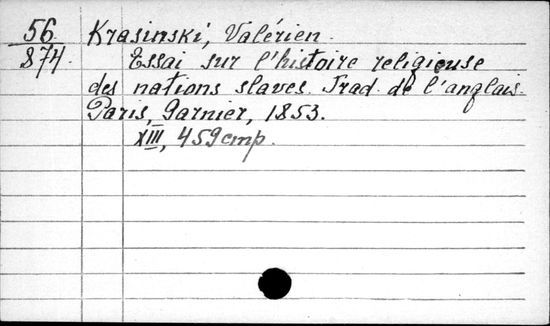 56 Krasinski, Valérien.
874. Essai sur l'histoire religieuse
des nations slaves. Trad. de l'anglais.
Paris, Garnier, 1853.
XIII, 459 стр.